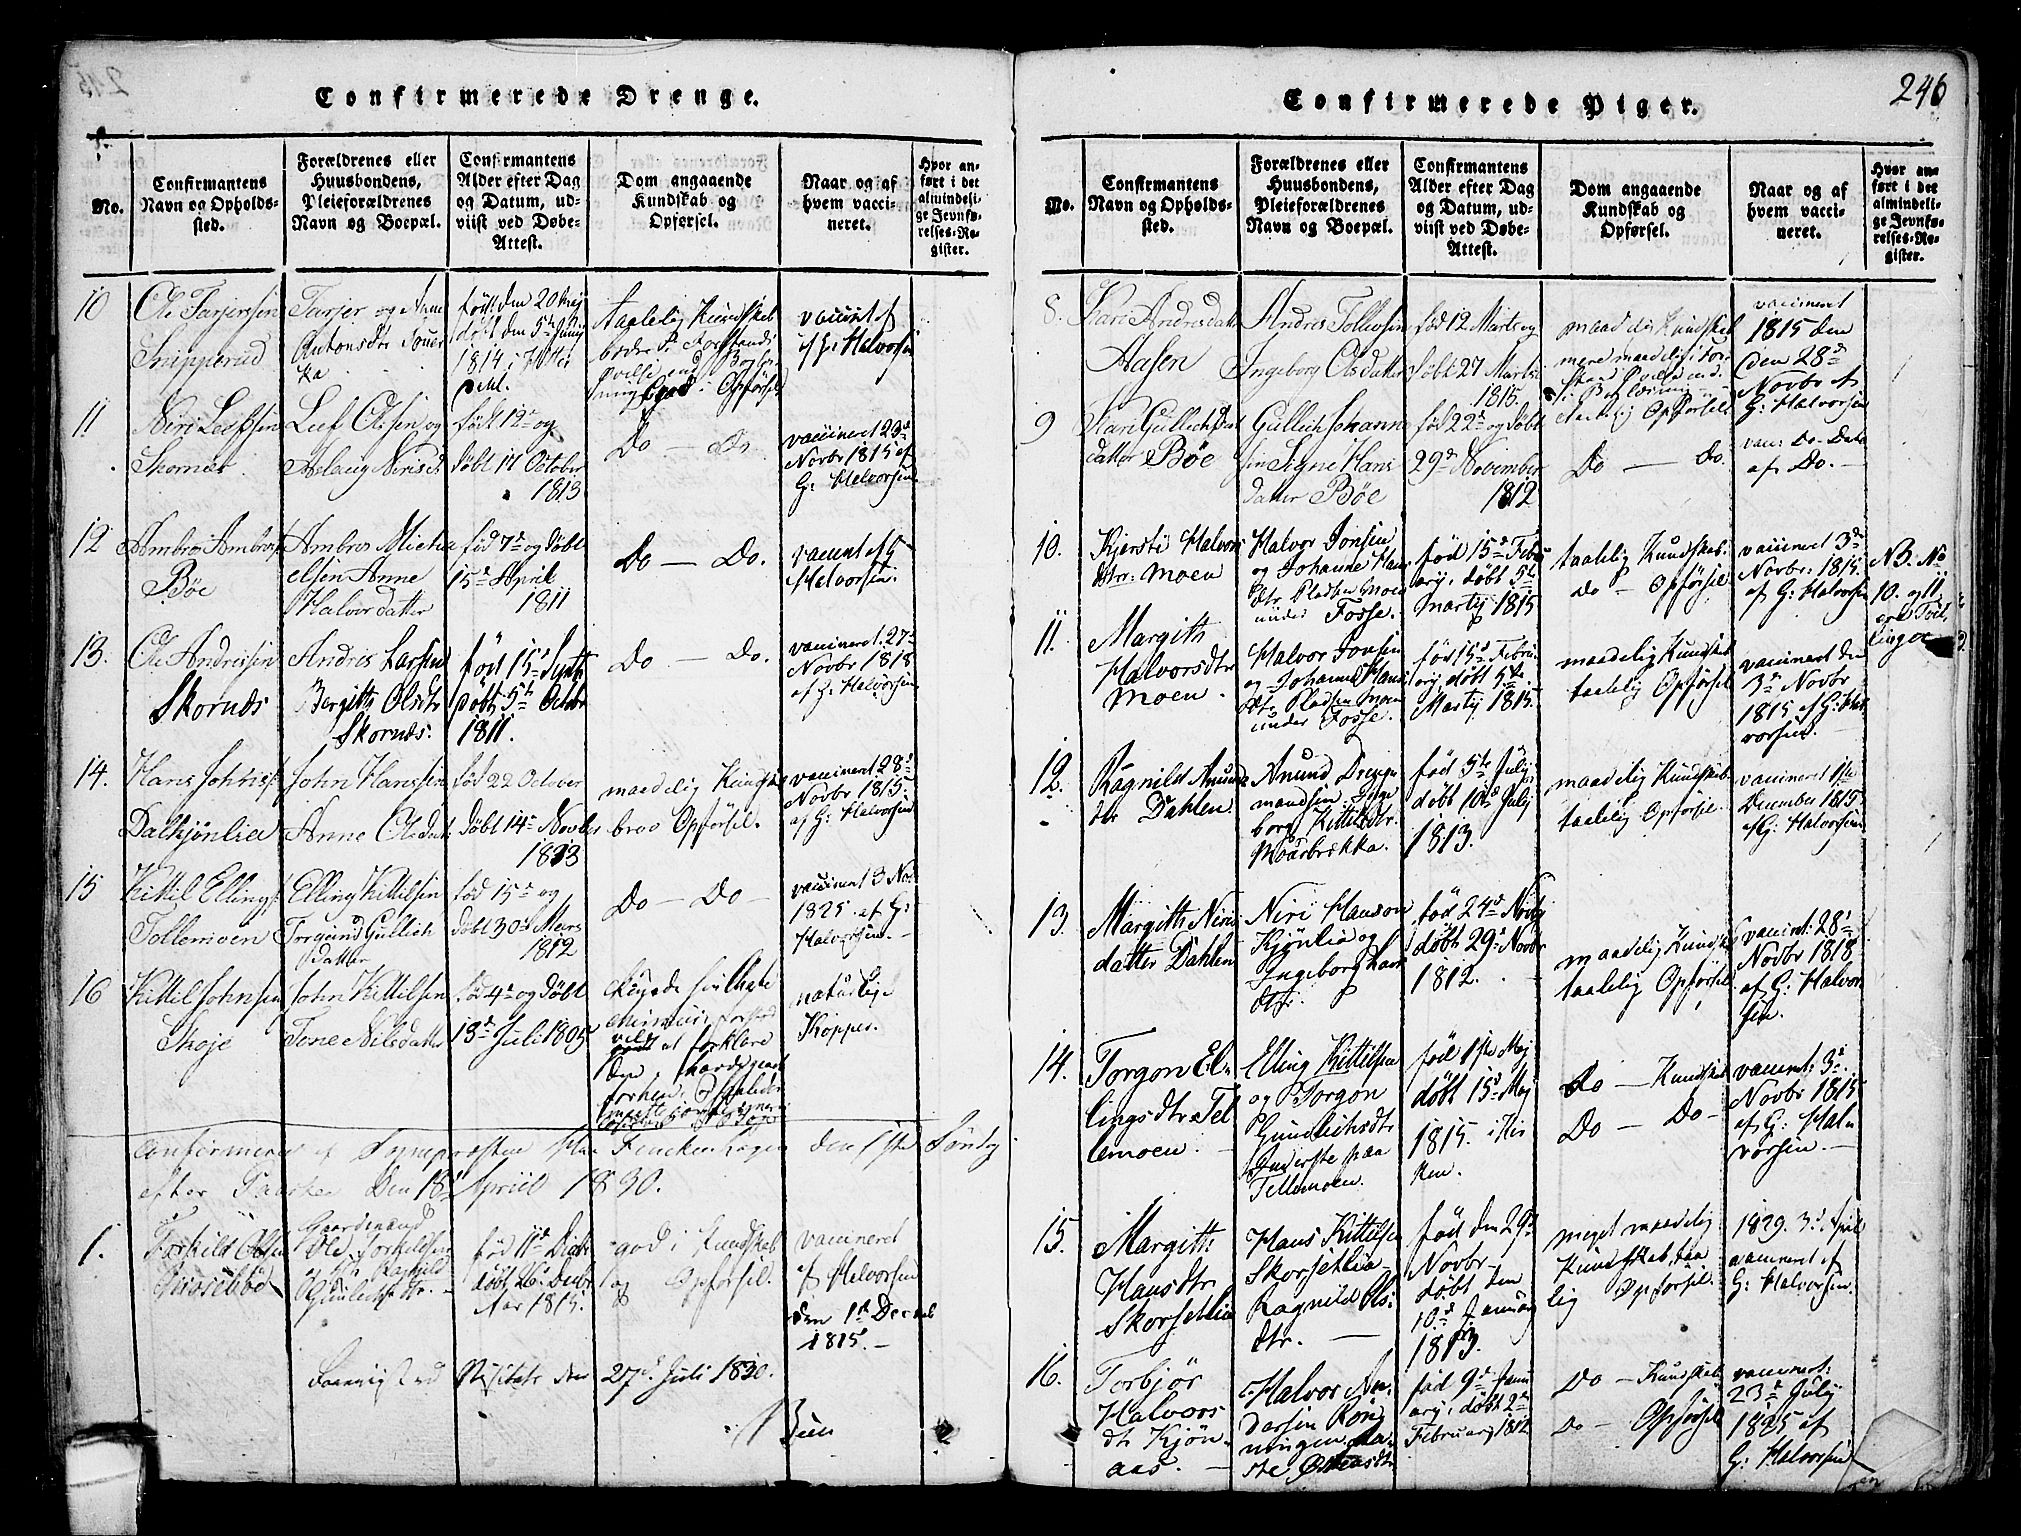 Confirmerede Drenge.
No.
Confirmantens
Navn og Opholds-
sted.
Forældrenes eller
Huusbondens,
Pleieforældrenes
Navn og Boepæl.
Confirmantens
Alder efter Dag
og Datum, ud-
viist ved Døbe-
Attest.
Dom angaaende
Kundskab og
Opførsel.
Naar og af
hvem vacci-
neret.
Hvor an-
ført i det
almindeli-
ge Jevnfø-
relses-Re-
gister.
10
Ole Tarjersen
Snipperud
Tarjer og Anne
født den 20 Maj
døbt den 5te Junij
1814
Taalelig Kundskab
Opførsel
vaccint af
G: Halvorsen
11
Niri Leifsen
Skornæs
Leif Olsen og
Aslaug Nirisd
født 12te og
døbt 17 October
1813
Do — Do
vaccineret 23de
Novbr 1815 af
G: Halvorsen
12
Ambros Ambros
Bøe
Ambros Micha
elsen Anne
Halvorsdatter
fød 7de og døbt
15de April
1811
Do — Do.
vaccint af G
Halvorsen.
13.
Ole Andresen
Skornæs
Andres Larsen
Bergitte Olsdtr
Skornæs.
født 15de Septb
døbt 5te Octbr
1811.
Do — Do.
vaccineret 27de
Novbr 1818
af G: Halvorsen
14.
Hans Johns
Dalkjønlien
John Hanssen
Anne Olsdat
fød 22 October
døbt 14de Novbr
1813
maadelig Kundskab
brav Opførsel.
vaccineret 28de
Novbr 1815.
af G: Halvorsen
15
Kittil Ellings
Tollemoen
Elling Kittilsen
Torgund Gullich
datter
fød 15de og
døbt 30de Mars
1812
Do — Do —
vaccineret 3 Nov
1825 af G:
Halvorsen. —
16
Kittil Johnsen
Skoje
John Kittilsen
Tone Nilsdatter
fød 4de og døbt
13de Juli 1805
naturlige
Kopper.
Confirmeret af Sogneprest Finckenhagen den 1ste Søndag
efter Paaske den 18de April 1830.
1.
Torkild Olsen
Gaardmand
Ole Torkildsen
og Ragnild
Gullichsdtr. —
fød 11te Decbr
døbt 26de Decbr
Aar 1815.
god i Kundskab
og Opførsel.
vaccineret
af Halvorsen
den 1ste Decemb
1815. —
Visitats den 27de Juli 1830.
246
Confirmerede Piger.
No.
Confirmantens
Navn og Opholds-
sted.
Forældrenes eller
Huusbondens,
Pleieforældrenes
Navn og Boepæl.
Confirmantens
Alder efter Dag
og Datum, ud-
viist ved Døbe-
Attest.
Dom angaaende
Kundskab og
Opførsel.
Naar og af
hvem vacci-
neret.
Hvor an-
ført i det
almindeli-
ge Jevnfø-
relses-Re-
gister.
8.
Kari Andresdatt
Aasen
Andres Tollefsen
Ingeborg Olsdatter
fød 12 Marts og
døbt 27 Marts
1815.
maadelig Kundskab
Opførsel
vaccineret
1815 den
den 28de
Novbr af
G: Halvorsen
9
Kari Gullichs
datter Bøe
Gullich Johann
sen Signe Hans
datter Bøe
fød 22de og døbt
29de November
1812
Do — Do.
vac: Do Dato
af Do. —
10.
Kjersti Halvors
dtr. Moen
Halvor Jonsen
og Johanne Han
dtr Pladsen Moen
under Fosse.
fød 15de Febru
arij, døbt 5te
Martij 1815
taalelig Kundskab.
do — Opførsel
vaccineret 3de
Novbr: 1815.
af G: Halvorsen
NB. No
10. og 11
er Tvil
linger
11.
Margith
Halvorsdtr
Moen.
Halvor Jonsen
og Johanne Hans
dtr Pladsen Moen
under Fosse.
fød 15de Febru
arij, døbt 5te
Martij 1815.
maadelig Kundskab
taalelig Opførsel
vaccineret den
3de Novbr
1815 af G: Hal
vorsen. —
12.
Ragnild Anunds
dtr Dahlen
Anund Dreng
mandsen Inge
borg Kittilsdtr.
Moarbrekka.
fød 5te Julij
døbt 10de Julij
1813.
maadelig Kundskab
taalelig Opførsel
vaccineret 1ste
December 1815
af G: Halvorsen
13.
Margith Niris
datter Dahlen
Niri Hanson
Kjønlia og
Ingeborg Lars
dtr.
fød 24de Novbr
døbt 29de Novbr
1812.
maadelig Kundskab
taalelig Opførsel
vaccinert 28de
Novbr 1818
af G: Halvor
sen.
14.
Torgon El-
lingsdtr Tel
lemoen. —
Elling Kittilsen
og Torgon
Gundlichsdtr
Inderste paa
Tellemoen.
fød 1ste Maj
døbt 15de Maj
1815. i Kir
ken.
do — Kundskab
Do — Do —
vaccineret 3de
Novbr 1815
af G: Hal-
vorsen. —
15.
Margith
Hansdtr
Skorsetlia
Hans Kittilsen
Skorsetlia —
Ragnild Ols
dtr. —
fød den 29de
Novbr —
døbt den
10de Januarij
1813.
meget maadelig
Kundskab, taa
lig Opførsel.
1829. 3de April
vaccineret af
G: Halvorsen.
16.
Torbjør
Halvors
dtr Kjøn-
aas. —
Halvor An-
dersen Røn
ningen Aa-
ste Ostensdtr
fød 9de Janu
arij, døbt 2de
Februarij 1812
Do — Kundskab
Do — Opførsel
vaccineret:
23de Julij
1825 af
G: Halvorsen